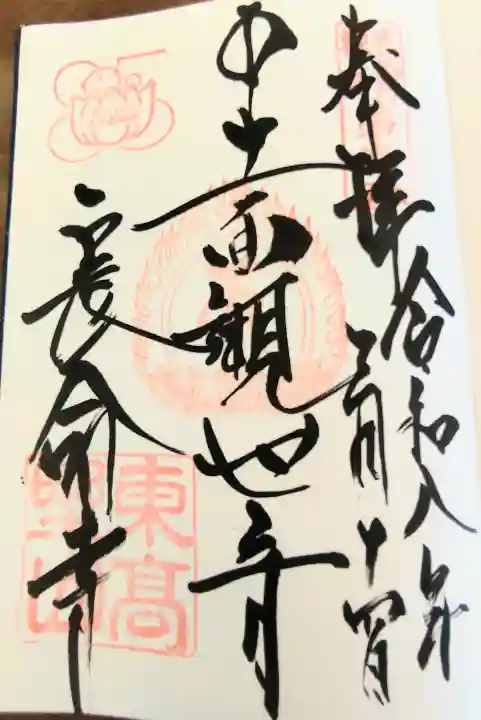 奉拝
令和八年
三月十四日
十一面観世音
長命寺
東高
野山